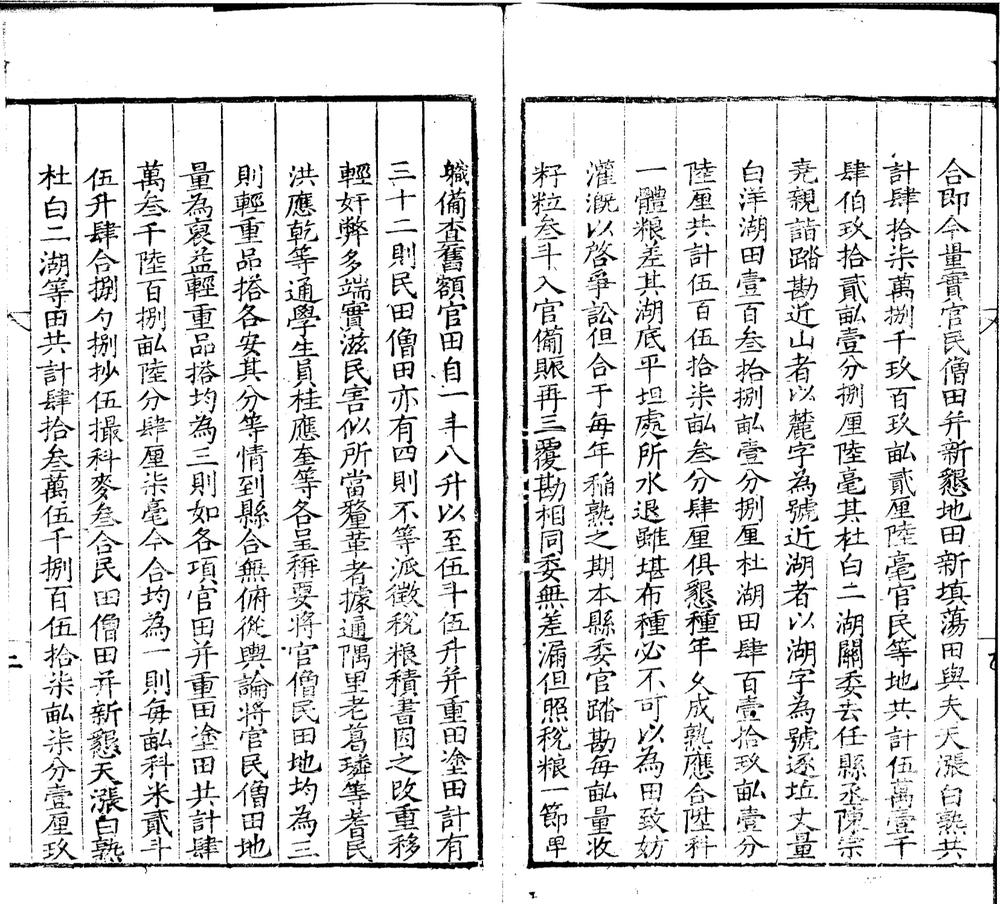 合即今量實官民僧田并新懇地田新填蕩田與夫天漲白熟共
計肆拾柒萬捌千玖百玖畝貳厘陸毫官民等地共計伍萬壹千
肆伯玖拾貳畝壹分捌厘陸毫其杜白二湖關委去任縣丞陳宗
堯親詣踏勘近山者以麓字為號近湖者以湖字為號逐坵丈量
白洋湖田壹百叁拾捌畝壹分捌厘杜湖田肆百壹拾玖畝壹分
陸厘共計伍百伍拾柒畝叁分肆厘俱懇種年久成熟應合陞科
一體粮差其湖底平坦處所水退雖堪布種必不可以為田致妨
灌溉以啓爭訟但合于每年稲熟之期本縣委官踏勘每畝量收
籽粒叁斗入官備賑再三覆勘相同委無差漏但照稅粮一節卑
職備查舊額官田自一斗八升以至伍斗伍升并重田塗田計有
三十二則民田僧田亦有四則不等派徵稅粮積書因之改重移
輕奸弊多端實滋民害似所當釐革者據通隅里老葛璘等著民
洪應乾等通學生員桂應奎等各呈稱要將官僧民田地均為三
則輕重品搭各安其分等情到縣合無俯從輿論將官民僧田地
量為裒益輕重品搭均為三則如各項官田并重田塗田共計肆
萬叁千陸百捌畝陸分肆厘柒毫今合均為一則每畝科米貳斗
伍升肆合捌勺捌抄伍撮科麥叁合民田僧田并新懇天漲白熟
杜白二湖等田共計肆拾叁萬伍千捌百伍拾柒畝柒分壹厘玖
二